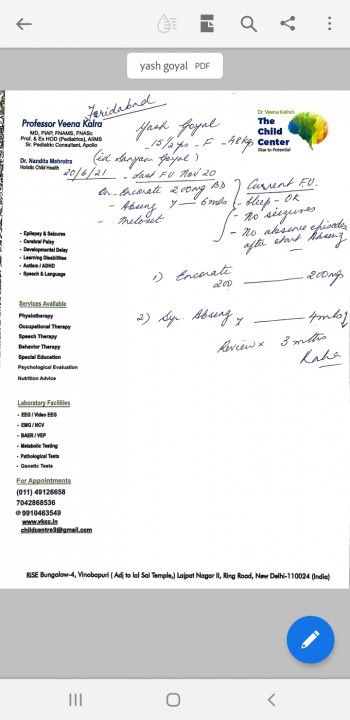 yash goyal PDF
Faridabad
Professor Veena Kalra
MD, FIAP, FNAMS, FNASc
Prof. & Ex HOD (Pediatrics), AIIMS
Sr. Pediatric Consultant, Apollo
Dr. Nandita Mehrotra
Holistic Child Health
Dr. Veena Kalra's
The
Child
Center
Rise to Potential
Yash Goyal
15 1/2 yrs - F - 48 kg
20/6/21 - Last FU Nov' 20
On - Encorate 200mg BD
- Absenz 6mls
Current F.U.
- Sleep - OK
- No seizures
- No absence episodes
after start Absenz
1) Encorate
200 200mg
2) Syr. Absenz 4mls
Review x 3 mths
• Epilepsy & Seizures
• Cerebral Palsy
• Developmental Delay
• Learning Disabilities
• Autism / ADHD
• Speech & Language
Services Available
Physiotherapy
Occupational Therapy
Speech Therapy
Behavior Therapy
Special Education
Psychological Evaluation
Nutrition Advice
Laboratory Facilities
• EEG / Video EEG
• EMG / NCV
• BAER / VEP
• Metabolic Testing
• Pathological Tests
• Genetic Tests
For Appointments
(011) 49126658
7042868536
9910463549
www.vkcc.in
childcentre3@gmail.com
RISE Bungalow-4, Vinobapuri ( Adj to lal Sai Temple,) Lajpat Nagar II, Ring Road, New Delhi-110024 (India)